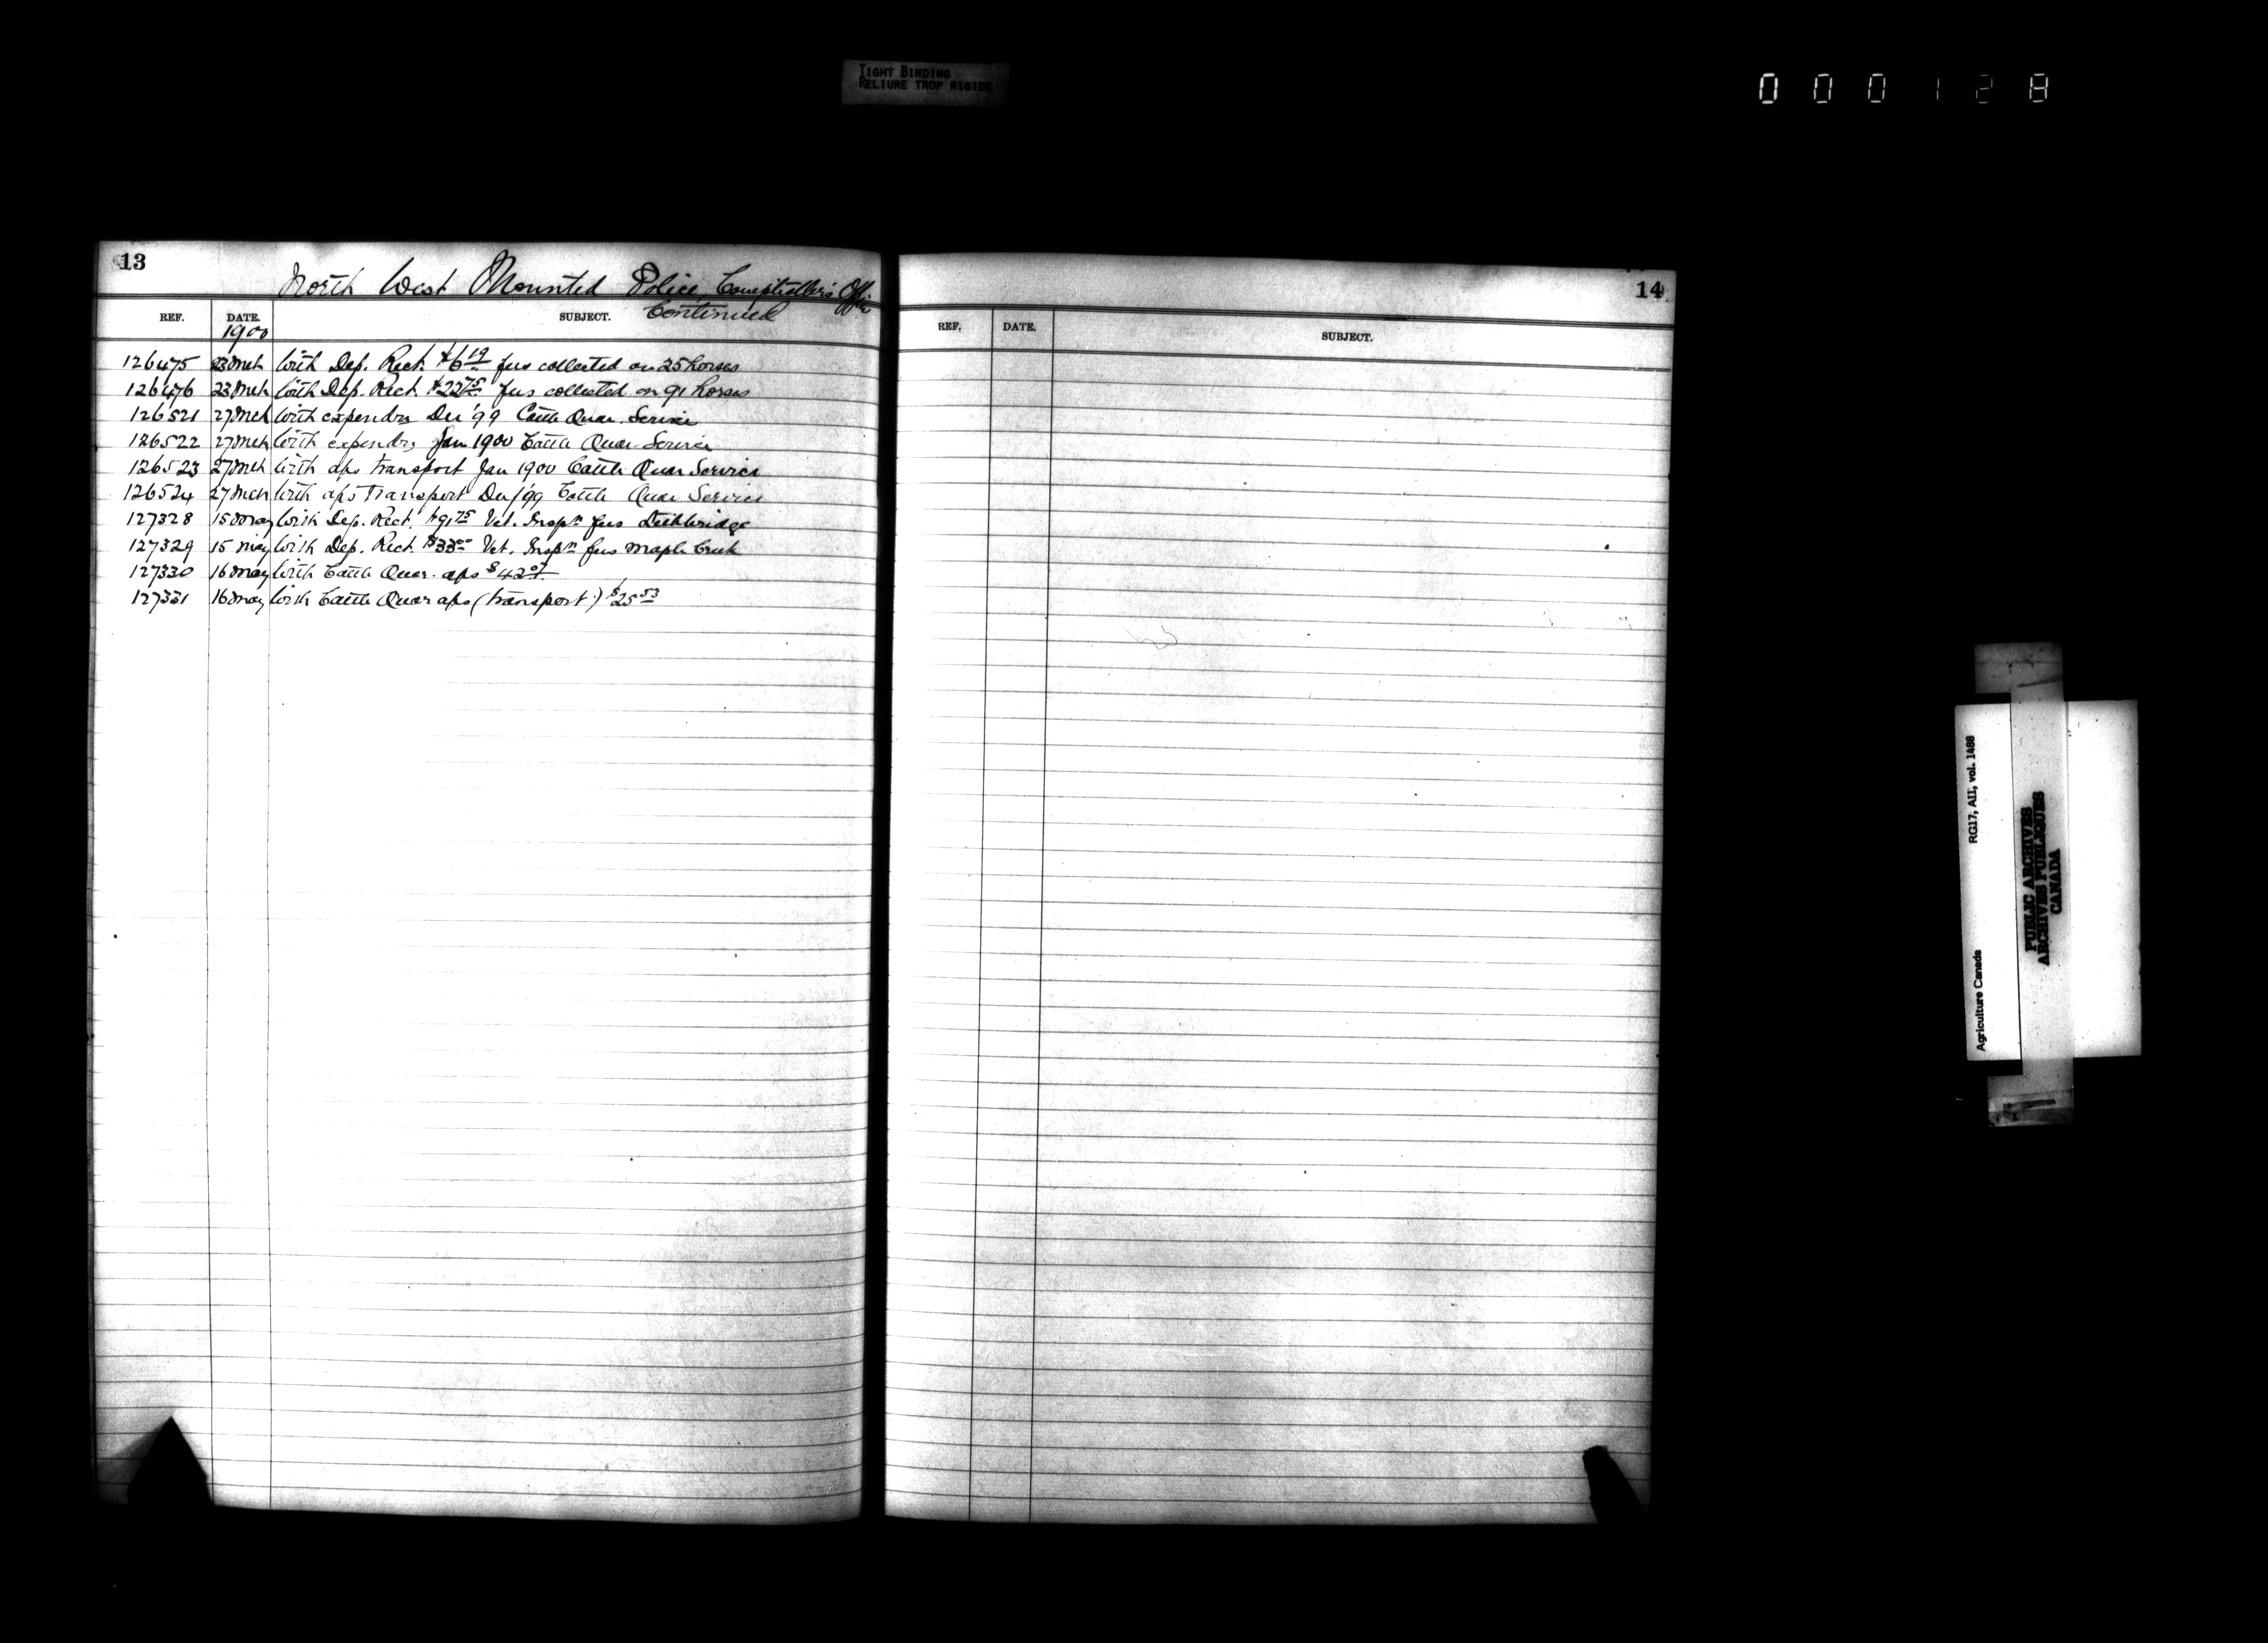 TIGHT BINDING
RELIURE TROP RIGIDE
000128
13
North West Mounted Police Comptroller's Office
Continued
REF. DATE. SUBJECT.
1900
126475 23 Mch With Dep. Rect. $6 19 fees collected on 25 horses
126476 23 Mch With Dep. Rect. $22 75 fees collected on 91 horses
126521 27 Mch With expenditr Dec '99 Cattle Quar. Service
126522 27 Mch With expenditr Jan 1900 Cattle Quar. Service
126523 27 Mch With aps transport Jan 1900 Cattle Quar Service
126524 27 Mch With aps Transport Dec/99 Cattle Quar Service
127328 15 May With Dep. Rect. $91 75 Vet. Inspn fees Lethbridge
127329 15 May With Dep. Rect. $33 00 Vet. Inspn fees Maple Creek
127330 16 May With Cattle Quar. aps $42 07
127331 16 May With Cattle Quar aps (transport) $25 53
14
REF. DATE. SUBJECT.
Agriculture Canada RG17, AII, vol. 1488
PUBLIC ARCHIVES
ARCHIVES PUBLIQUES
CANADA